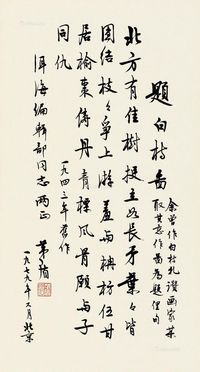 题白杨图
余曾作白杨礼赞画家某
取其意作图为题俚句
北方有佳树挺立如长矛葉々皆
团结枝々争上游羞与楠枋伍甘
居榆枣俦丹青標风骨愿与子
同仇
一九四三年旧作
洱海编辑部同志两正
茅盾
一九七九年六月北京